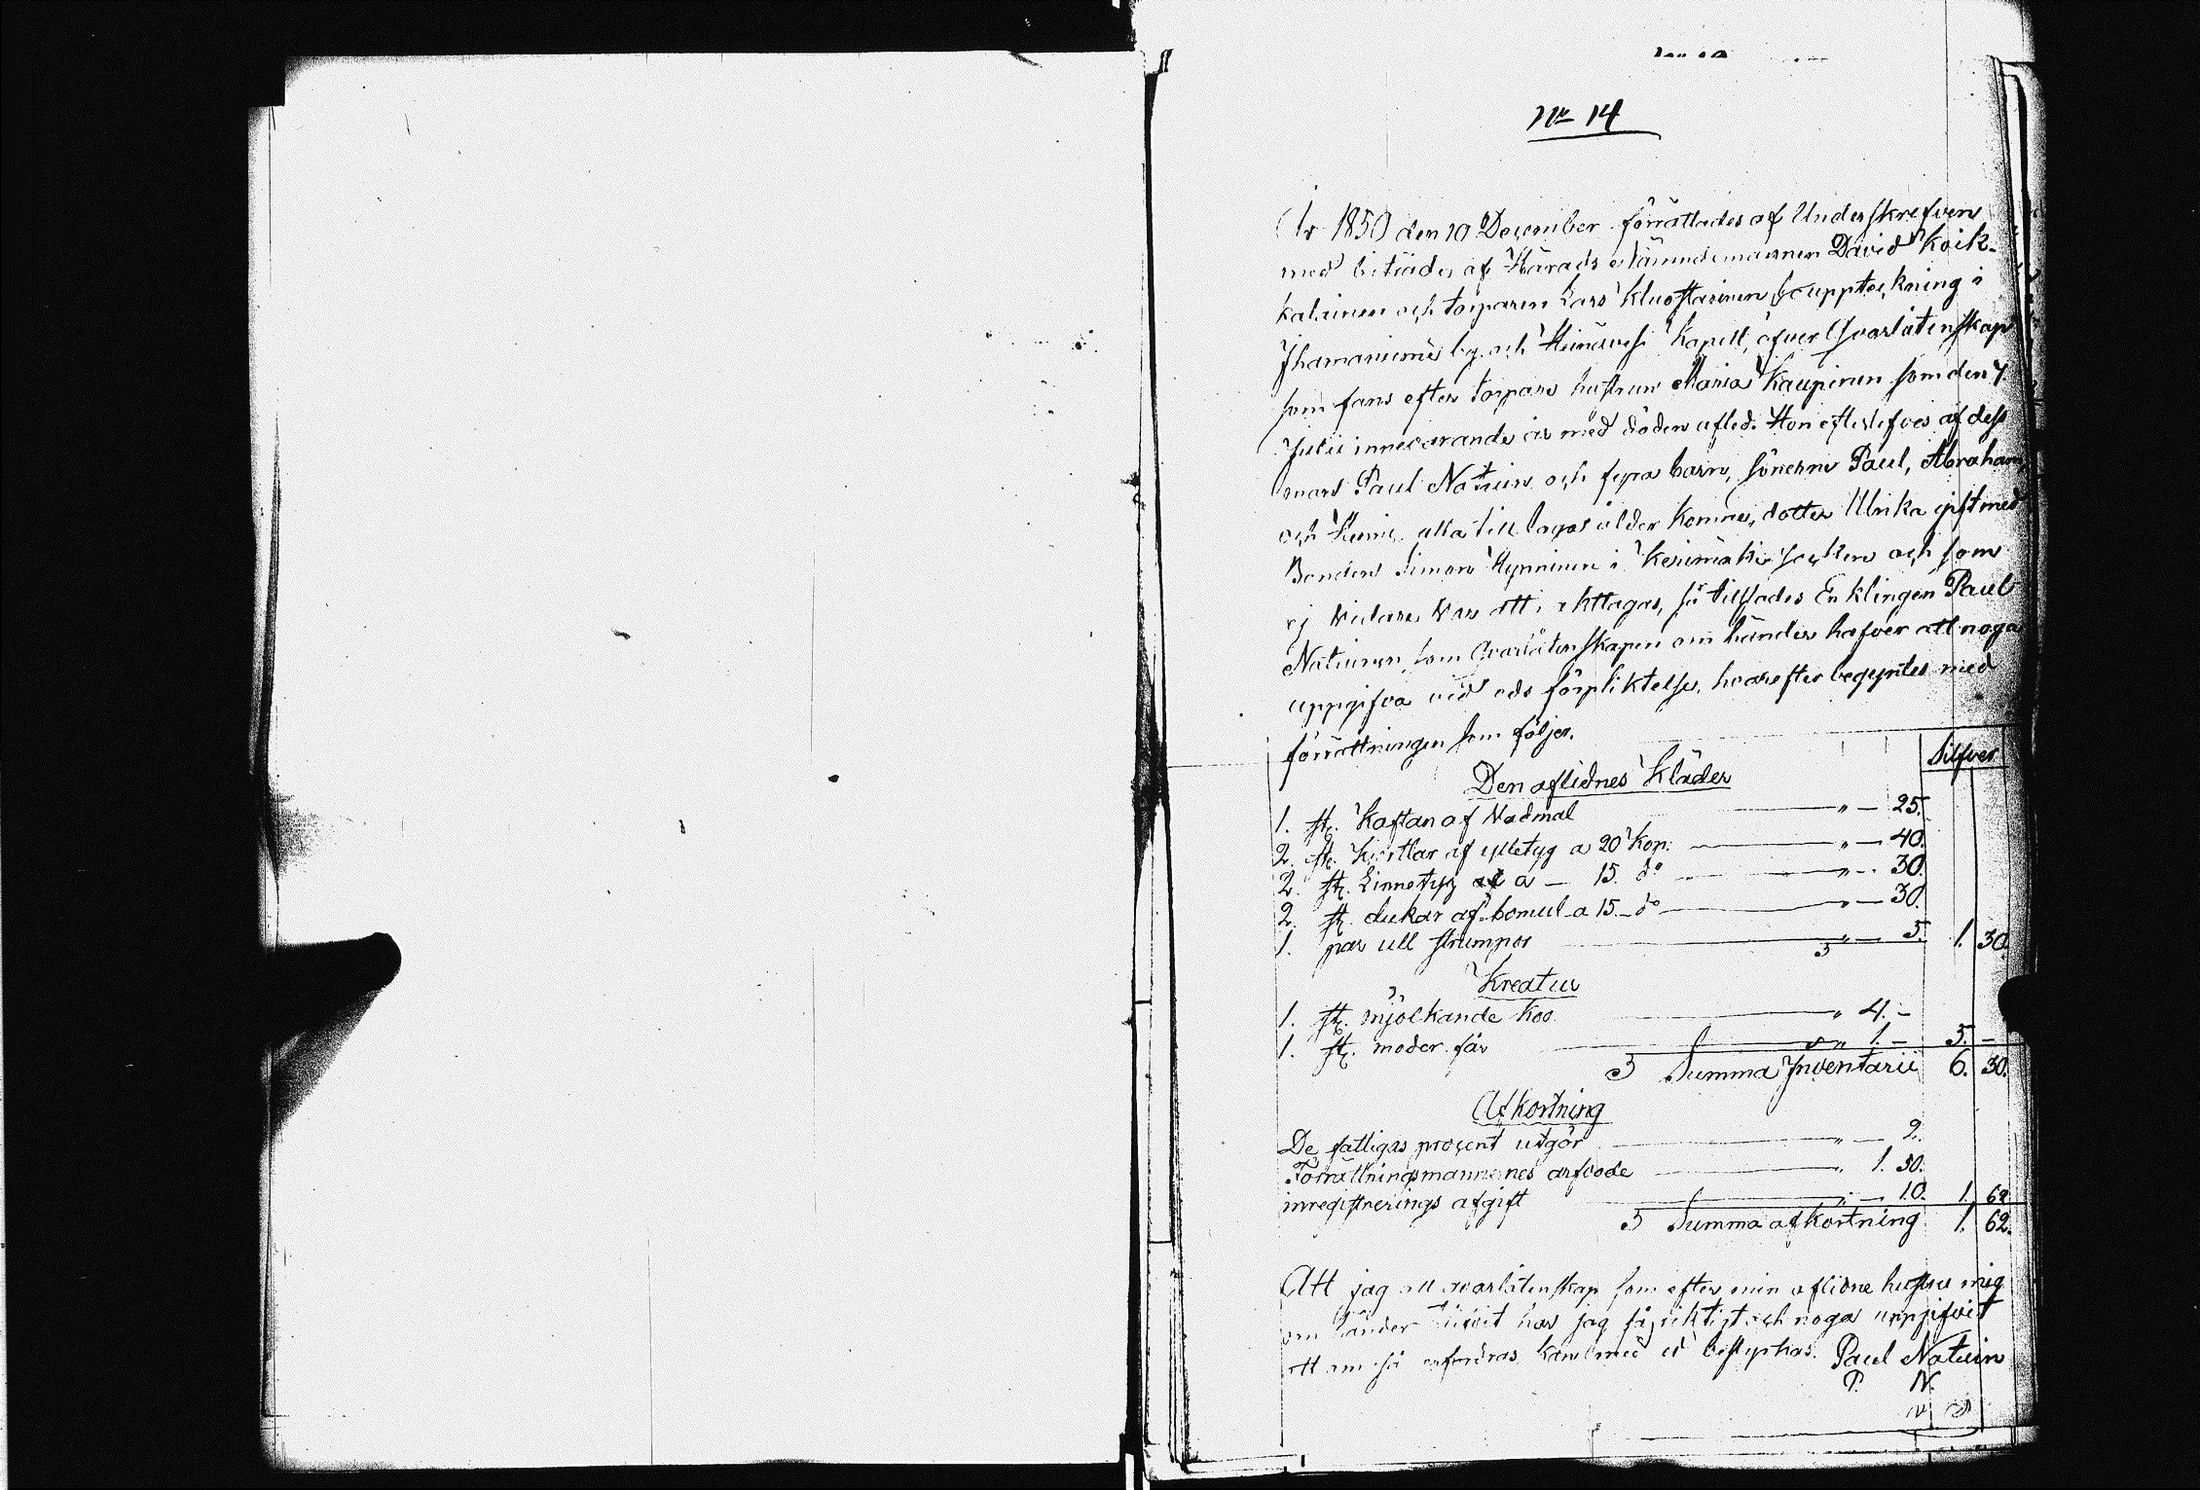 No 14
År 1850 den 10 December förrättades af Underskrefven
med biträde af Härads nämndemannen David Koik-
kalainen och torparen Lars Kluostarinen bouppteckning i
Ihamaniemi by och Heinävesi Kapell, öfver Qvarlåtenskap
som fans efter torpare hustrun Maria Kaupinen som den 7.
Julii innevarande år med döden afled. Hon efterlefves af dess
man Paul Natuin och fyra barn, sönerne Paul, Abraham,
och alla till laga ålder komne, dotter Ulrika gift med
Bonden Simon Hynninen i Kerimäki Socken och som
ej vidare var att i akttagas, så tillsades Enklingen Paul
Natuinen som Qvarlåtenskapen om händer hafver att noga
uppgifva vid eds förpliktelse, hvarefter begyntes med
förrättningen som följer.
Silfver
Den aflidnes Kläder
1. st. Kaftan af Vadmal " — 25.
2. st. Kjortlar af ylletyg a 20 Kop. " — 40.
2. st. Linnetyg a — 15. do " — 30.
2. st. dukar af bomul a 15 — do " — 30.
1. par ull strumpor " — 5. 1. 30.
Kreatur
1. st. mjölkande Koo " 4. –
1. st. moder får " 1. – 5. –
S Summa Inventarii 6. 30.
Afkortning
De fattigas procent utgör " — 2.
Förrättningsmannenes arfvode " 1. 50.
inregistrerings afgift " — 10. 1. 62
S Summa afkortning 1. 62.
Att jag all qvarlåtenskap som efter min aflidne hustru mig
om händer har jag så riktigt och noga uppgifvit
att om så erfordras kan med ed bestyrkas. Paul Natuin
P. N.